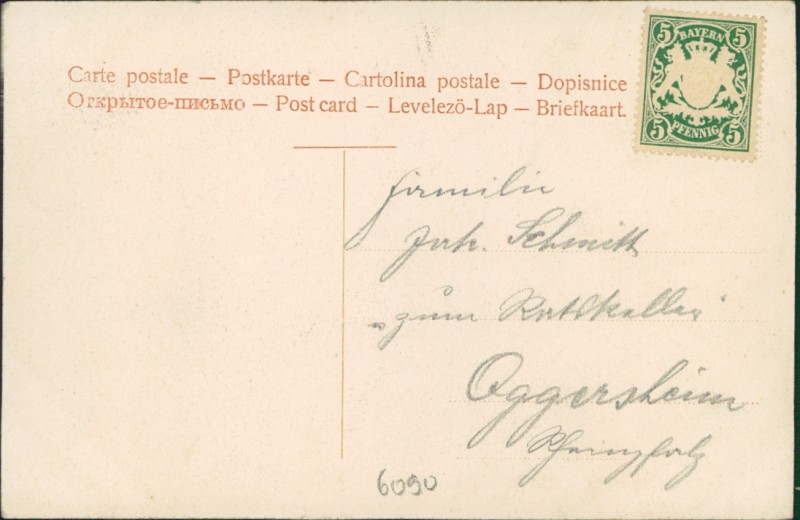 Carte postale — Postkarte — Cartolina postale — Dopisnice
Открытое-письмо — Post card — Levelezö-Lap — Briefkaart.
5 BAYERN 5
5 PFENNIG 5
Familie
Joh. Schmitt
„zum Ratskeller"
Oggersheim
Rheinpfalz
6090